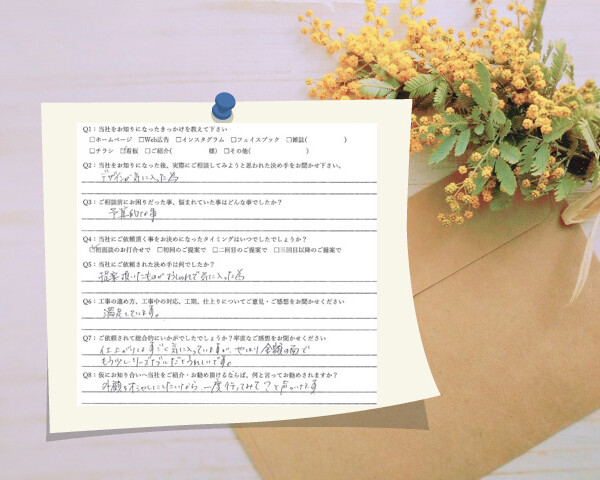 Q1：当社をお知りになったきっかけを教えて下さい
□ホームページ □Web広告 □インスタグラム □フェイスブック □雑誌( )
□チラシ ☑看板 □ご紹介( 様) □その他( )
Q2：当社をお知りになった後、実際にご相談してみようと思われた決め手をお聞かせ下さい。
デザインが気に入った為
Q3：ご相談前にお困りだった事、悩まれていた事はどんな事でしたか？
予算的な事
Q4：当社にご依頼頂く事をお決めになったタイミングはいつでしたでしょうか？
☑初面談のお打合せで □初回のご提案で □二回目のご提案で □三回目以降のご提案で
Q5：当社にご依頼された決め手は何でしたか？
提案頂いたものがおしゃれで気に入った為
Q6：工事の進め方、工事中の対応、工期、仕上りについてご意見・ご感想をお聞かせください
満足しています。
Q7：ご依頼されて総合的にいかがでしたでしょうか？率直なご感想をお聞かせください
仕上がりはすごく気に入っていますが、やはり金額の面で
もう少しリーズナブルだとうれしいです。
Q8：仮にお知り合いへ当社をご紹介・お勧め頂けるならば、何と言ってお勧めされますか？
外観をオシャレにしたいなら 一度行ってみて？と声かけます